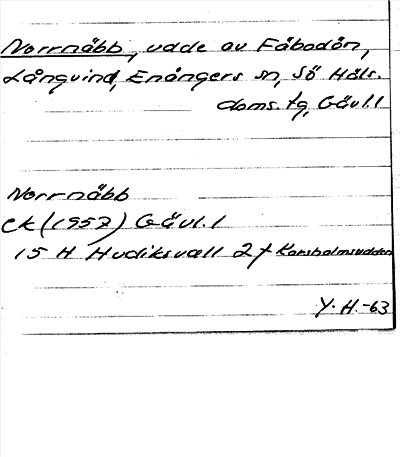 Norrnäbb, udde av Fäbodön,
Långvind, Enångers sn, Sö Häls.
doms. tg, Gävl. l
Norrnäbb
Ek (1957) Gävl. l
15 H Hudiksvall 2 f Korsholmsudden
Y. H. -63